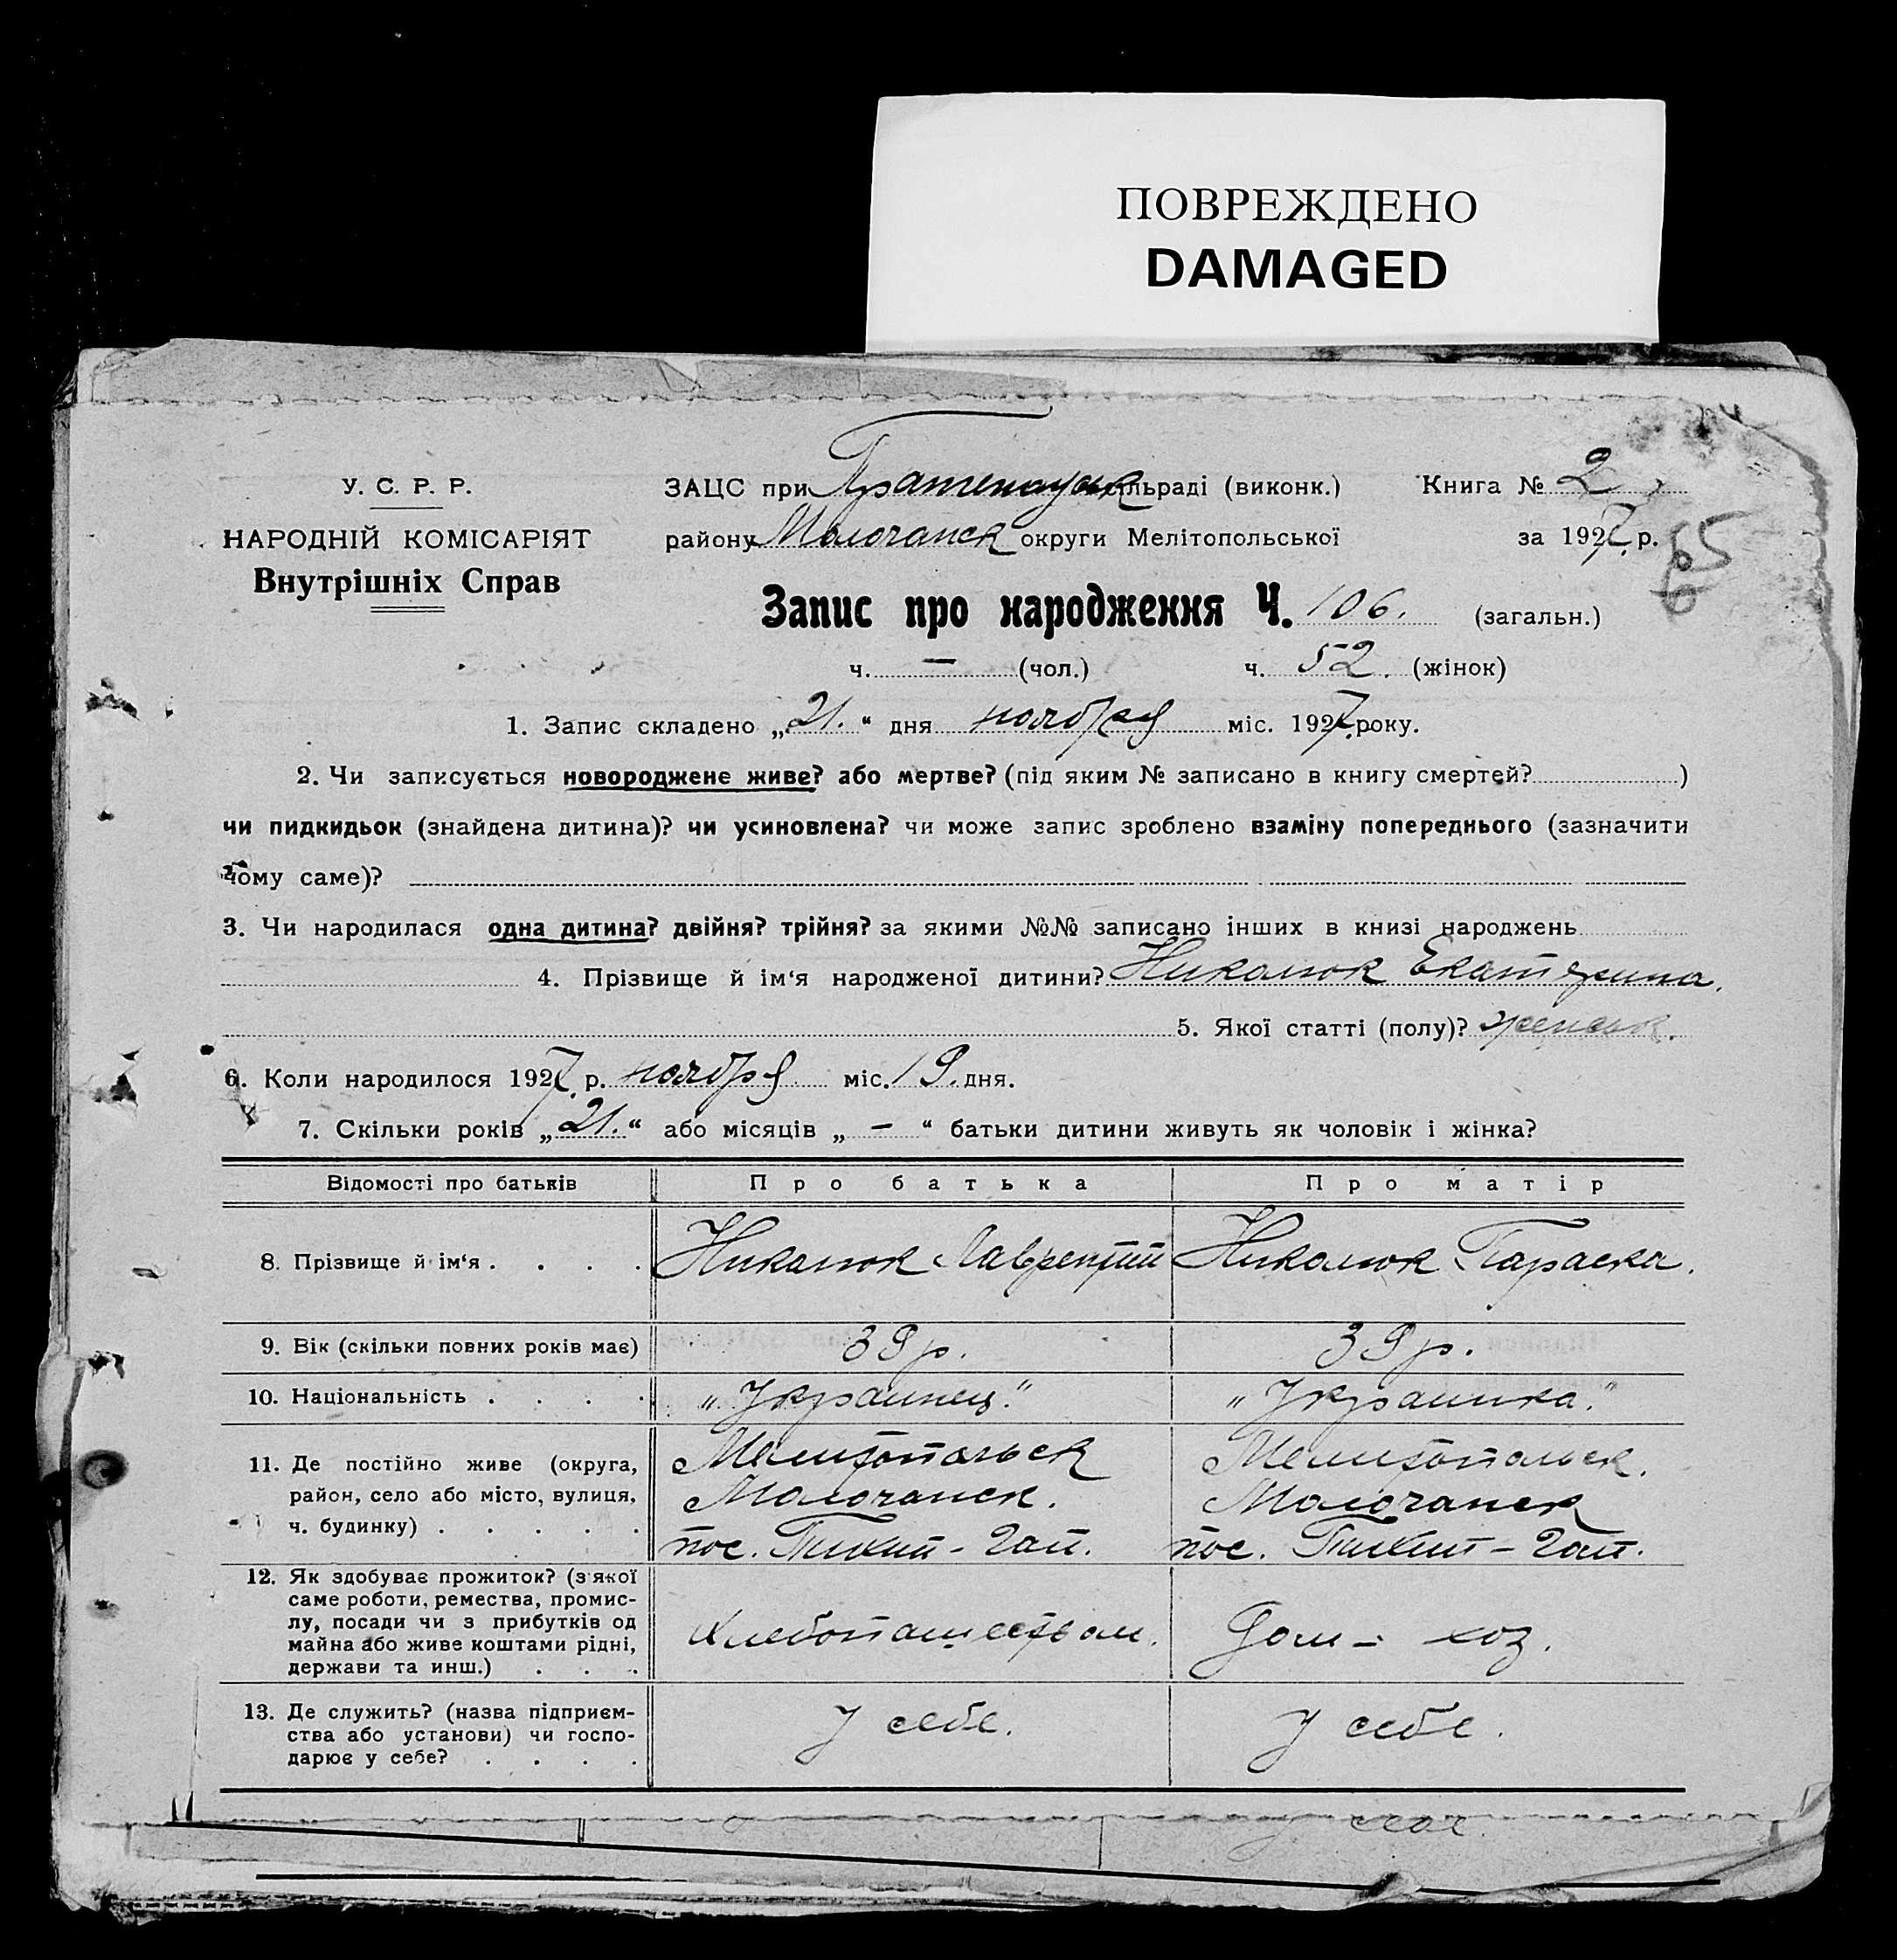 ПОВРЕЖДЕНО
DAMAGED
У. С. Р. Р.
НАРОДНІЙ КОМІСАРІЯТ
Внутрішніх Справ
ЗАЦС при сільраді (виконк.) Книга № 2
району Молочанск округи Мелітопольської за 1927 р.
65
Запис про народження Ч. 106. (загальн.)
ч. — (чол.) ч. 52. (жінок)
1. Запис складено „21.“ дня ноября міс. 1927 року.
2. Чи записується новороджене живе? або мертве? (під яким № записано в книгу смертей? )
чи пидкидьок (знайдена дитина)? чи усиновлена? чи може запис зроблено взаміну попереднього (зазначити
чому саме)?
3. Чи народилася одна дитина? двійня? трійня? за якими №№ записано інших в книзі народжень
4. Прізвище й ім‘я народженої дитини? Николюк Екатерина.
5. Якої статті (полу)? женськ.
6. Коли народилося 1927 р. ноября міс. 19. дня.
7. Скільки років „21.“ або місяців „ — “ батьки дитини живуть як чоловік і жінка?
Відомості про батьків Про батька Про матір
8. Прізвище й ім‘я . . . . Николюк Лаврентий Николюк Параска.
9. Вік (скільки повних років має) 39 р. 39 р.
10. Національність . . . . „Украинец.“ „Украинка.“
11. Де постійно живе (округа, район, село або місто, вулиця, ч. будинку) . . . . .
Мелитопольск Мелитопольск.
Молочанск. Молочанск
пос. Тихий - Гай. пос. Тихий - Гай.
12. Як здобуває прожиток? (з якої
саме роботи, ремества, промис-
лу, посади чи з прибутків од
майна або живе коштами рідні,
держави та инш.) . . .
Хлебопашеством. Дом - хоз.
13. Де служить? (назва підприєм-
ства або установи) чи госпо-
дарює у себе? . . . .
У себе. У себе.
у себе.